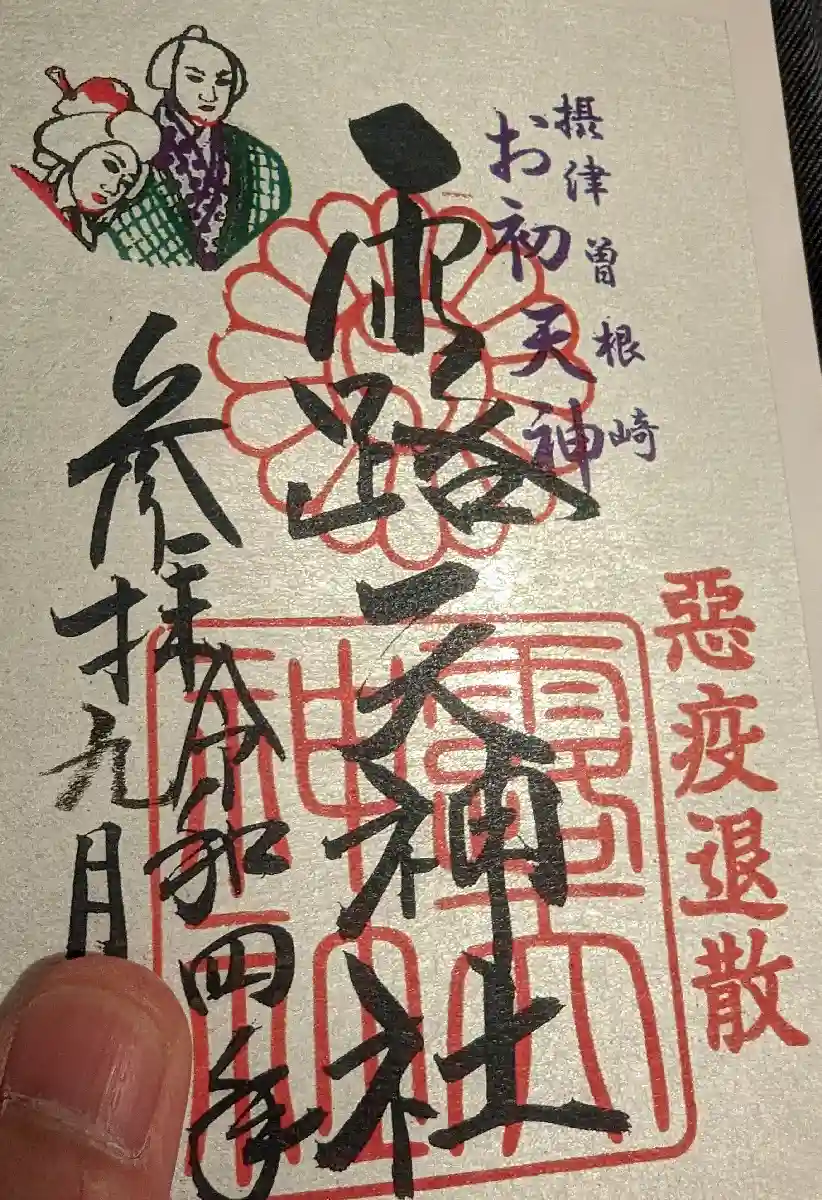 摂津曽根崎
お初天神
惡疫退散
露天神社
令和四年
参拝九月